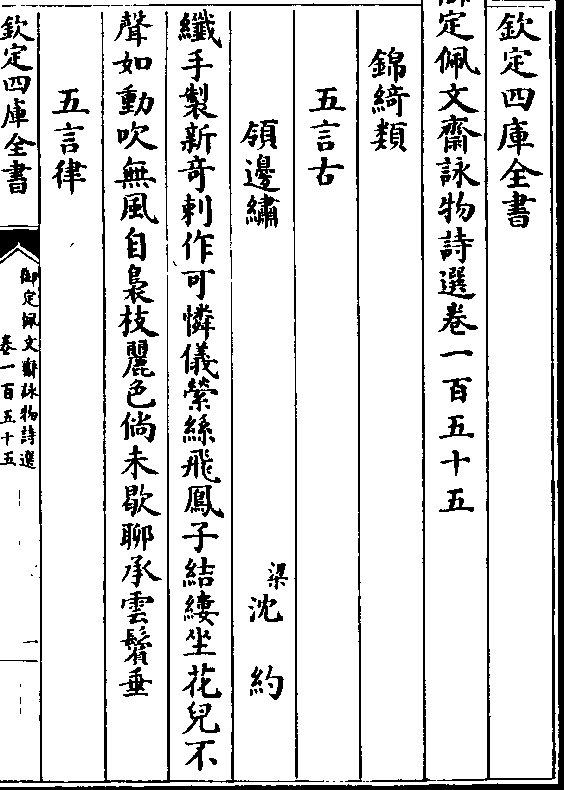 欽定四庫全書
御定佩文齋詠物詩選卷一百五十五
錦綺類
五言古
領邊繡 梁 沈約
纖手製新奇刺作可憐儀縈絲飛鳳子結縷坐花兒不
聲如動吹無風自裊枝麗色倘未歇聊承雲鬢垂
五言律
欽定四庫全書
御定佩文齋詠物詩選
卷一百五十五
一